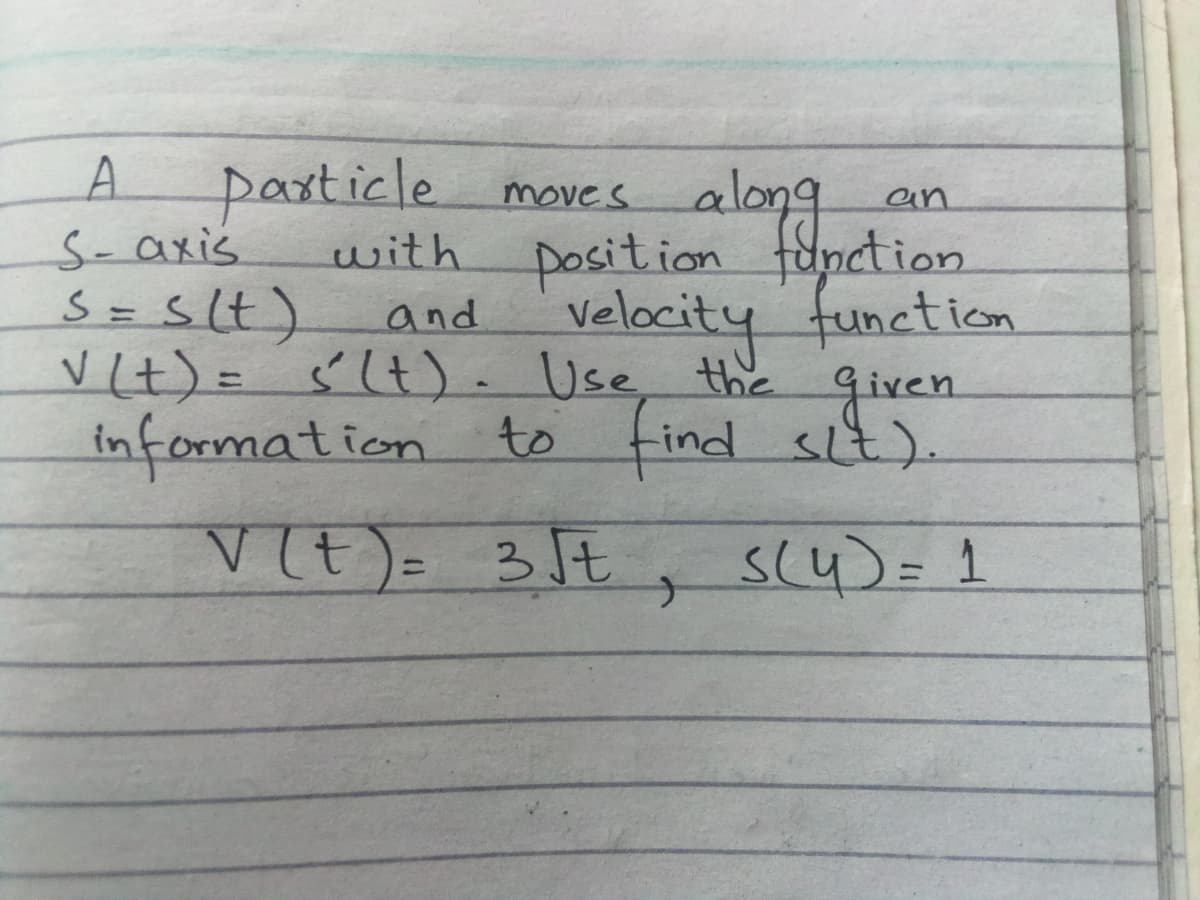 A particle moves along an
s-axis with position function
s = s(t) and velocity function
v(t) = s'(t). Use the given
information to find s(t).
v(t) = 3√t , s(4) = 1